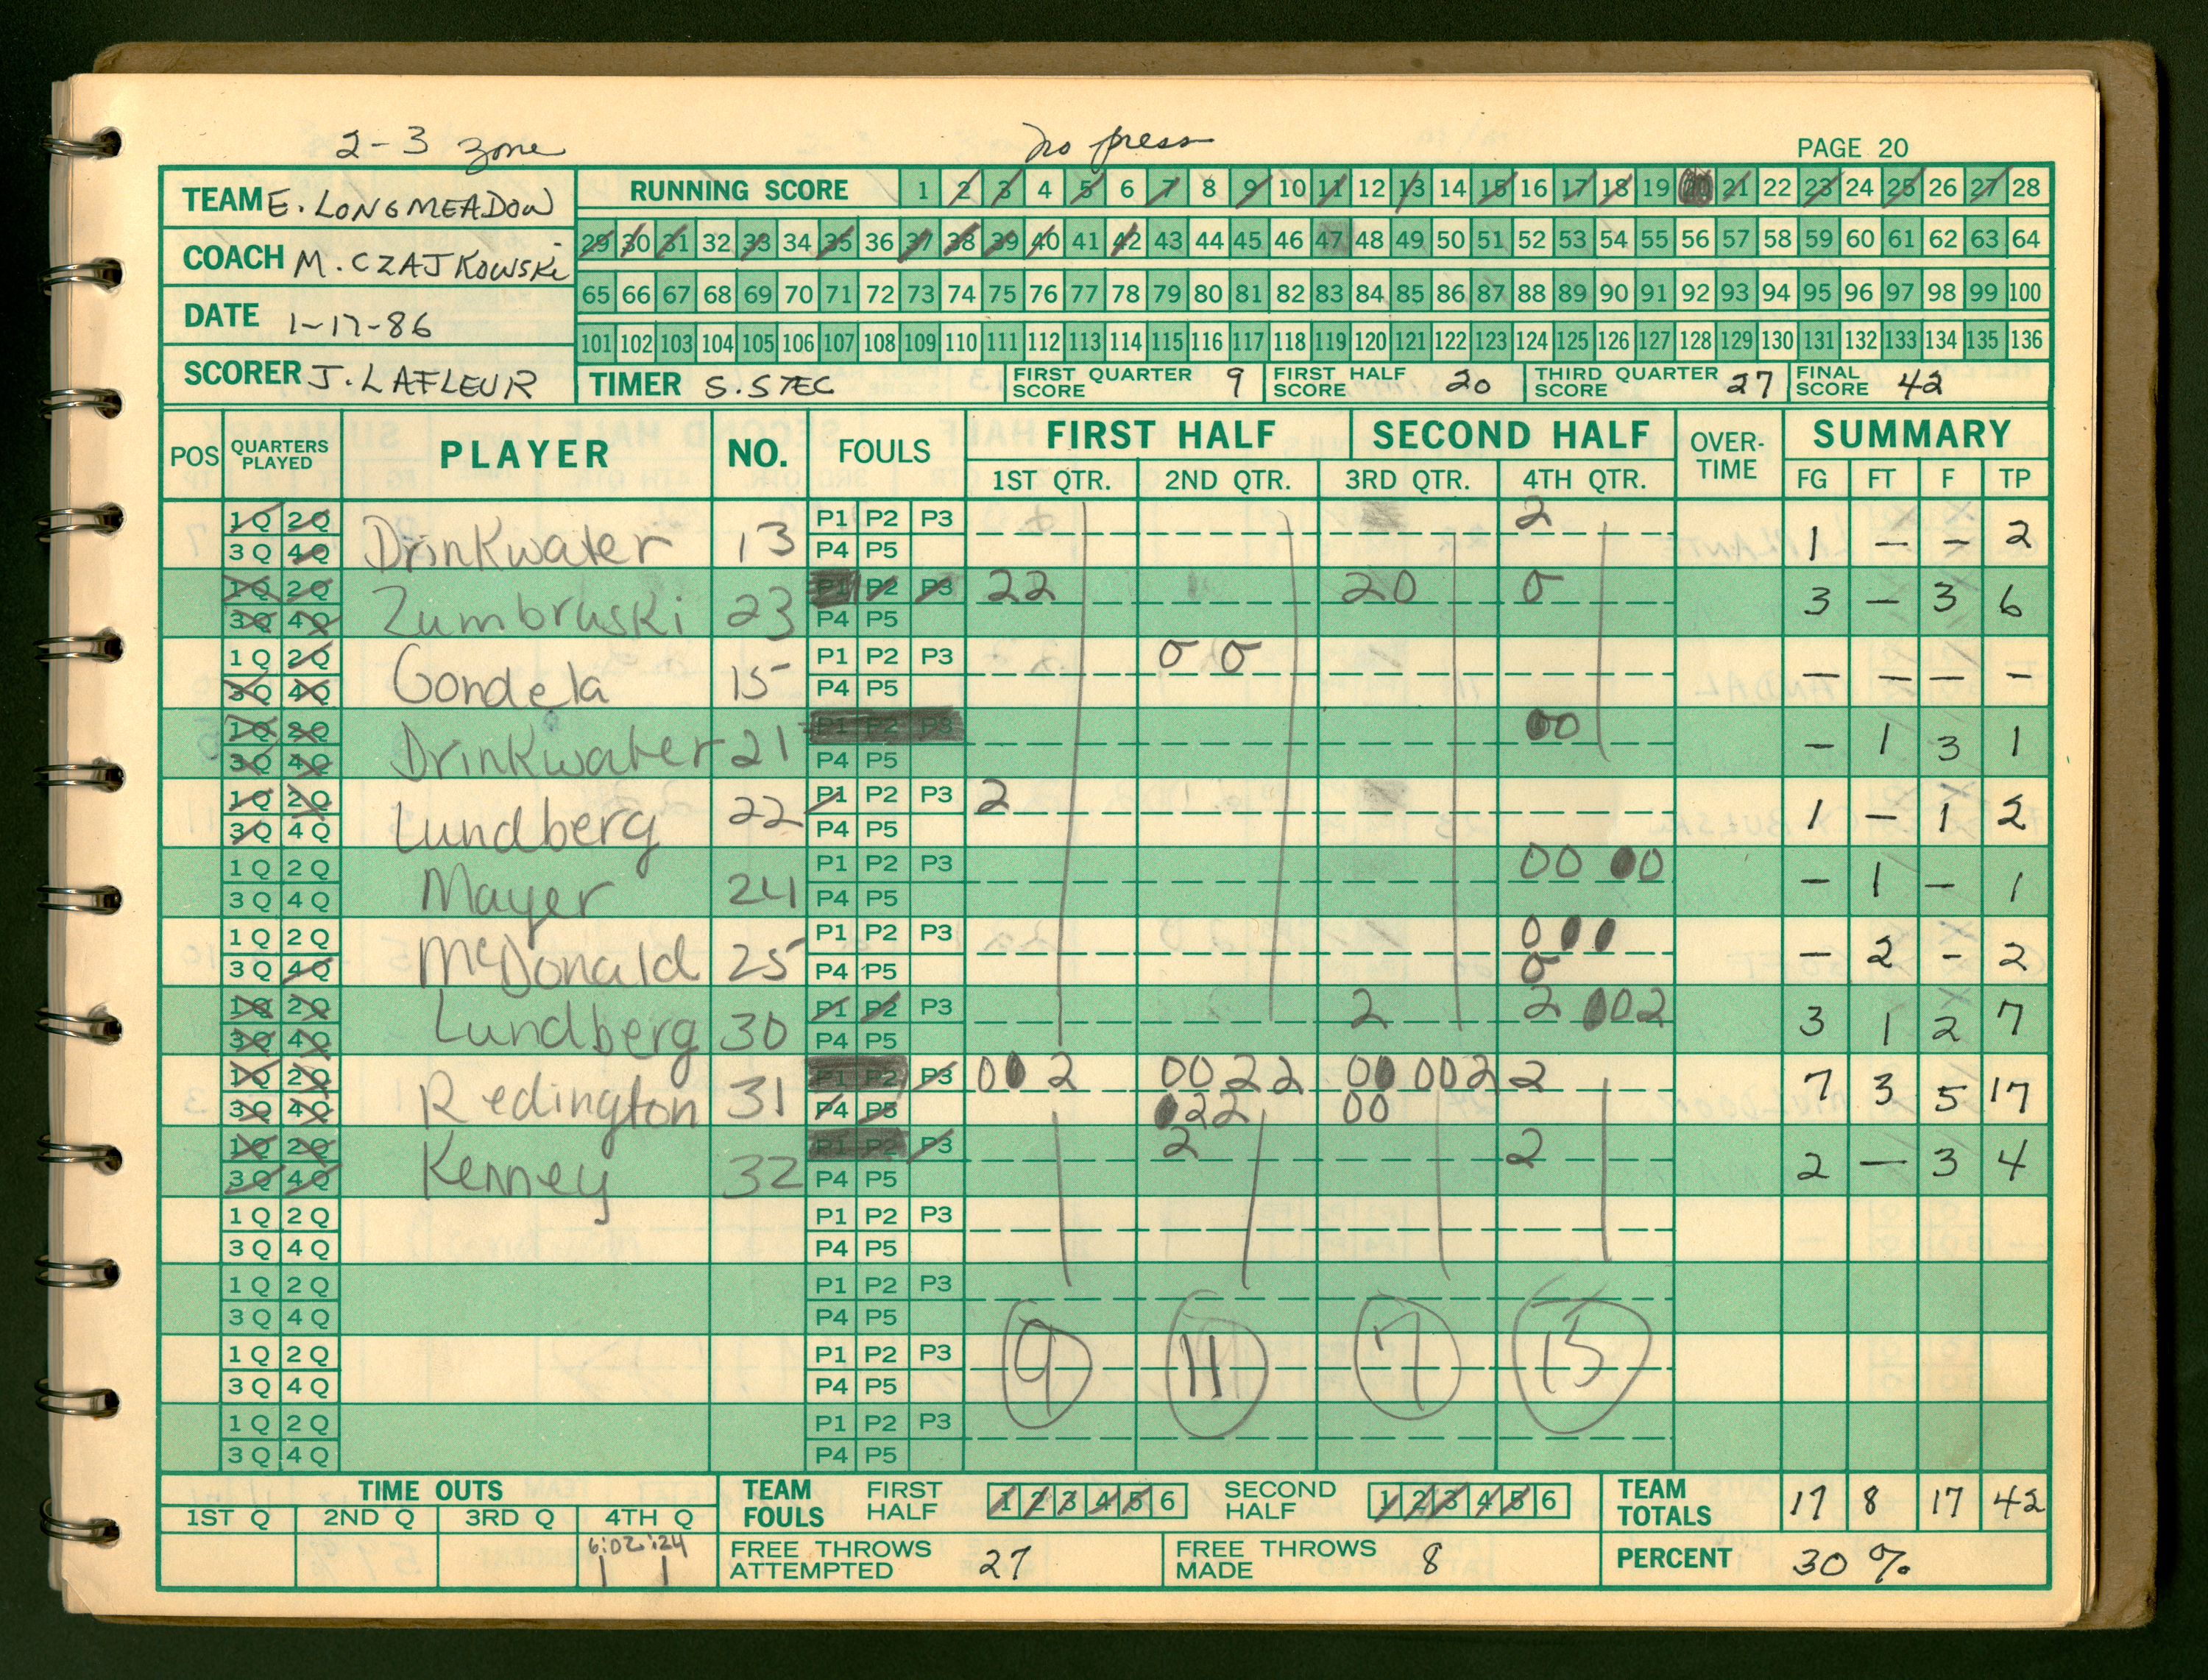 2-3 zone no press PAGE 20
TEAM E. LONGMEADOW
COACH M. CZAJKOWSKI
DATE 1-17-86
SCORER J. LAFLEUR
RUNNING SCORE 1 2 3 4 5 6 7 8 9 10 11 12 13 14 15 16 17 18 19 20 21 22 23 24 25 26 27 28
29 30 31 32 33 34 35 36 37 38 39 40 41 42 43 44 45 46 47 48 49 50 51 52 53 54 55 56 57 58 59 60 61 62 63 64
65 66 67 68 69 70 71 72 73 74 75 76 77 78 79 80 81 82 83 84 85 86 87 88 89 90 91 92 93 94 95 96 97 98 99 100
101 102 103 104 105 106 107 108 109 110 111 112 113 114 115 116 117 118 119 120 121 122 123 124 125 126 127 128 129 130 131 132 133 134 135 136
TIMER S. STEC FIRST QUARTER SCORE 9 FIRST HALF SCORE 20 THIRD QUARTER SCORE 27 FINAL SCORE 42
POS QUARTERS PLAYED PLAYER NO. FOULS FIRST HALF SECOND HALF OVER-TIME SUMMARY
1ST QTR. 2ND QTR. 3RD QTR. 4TH QTR. FG FT F TP
1Q 2Q P1 P2 P3 2
3Q 4Q Drinkwater 13 P4 P5 1 – – 2
1Q 2Q P1 P2 P3 22 20 0
3Q 4Q Zumbruski 23 P4 P5 3 – 3 6
1Q 2Q P1 P2 P3 0 0
3Q 4Q Gondela 15 P4 P5 – – – –
1Q 2Q P1 P2 P3 00
3Q 4Q Drinkwater 21 P4 P5 – 1 3 1
1Q 2Q P1 P2 P3 2
3Q 4Q Lundberg 22 P4 P5 1 – 1 2
1Q 2Q P1 P2 P3 00 00
3Q 4Q Mayer 24 P4 P5 – 1 – 1
1Q 2Q P1 P2 P3 000
3Q 4Q McDonald 25 P4 P5 0 – 2 – 2
1Q 2Q P1 P2 P3 2 2 002
3Q 4Q Lundberg 30 P4 P5 3 1 2 7
1Q 2Q P1 P2 P3 00 2 0022 00 002 2
3Q 4Q Redington 31 P4 P5 022 00 7 3 5 17
1Q 2Q P1 P2 P3 2 2
3Q 4Q Kenney 32 P4 P5 2 – 3 4
1Q 2Q P1 P2 P3
3Q 4Q P4 P5
1Q 2Q P1 P2 P3
3Q 4Q P4 P5
1Q 2Q P1 P2 P3 9 11 7 15
3Q 4Q P4 P5
1Q 2Q P1 P2 P3
3Q 4Q P4 P5
TIME OUTS
1ST Q 2ND Q 3RD Q 4TH Q
6:02 :24
TEAM FOULS FIRST HALF 1 2 3 4 5 6 SECOND HALF 1 2 3 4 5 6
TEAM TOTALS 17 8 17 42
FREE THROWS ATTEMPTED 27 FREE THROWS MADE 8 PERCENT 30%